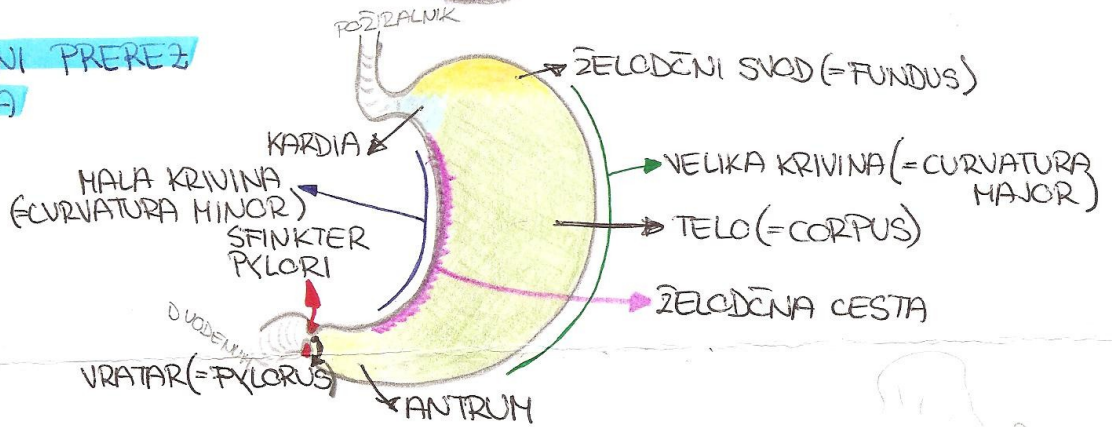 POŽIRALNIK
PREREZ
ŽELODČNI SVOD (=FUNDUS)
KARDIA
VELIKA KRIVINA (=CURVATURA
MAJOR)
MALA KRIVINA
(=CURVATURA MINOR)
TELO (=CORPUS)
SFINKTER
PYLORI
ŽELODČNA CESTA
DUODENUM
VRATAR (=PYLORUS)
ANTRUM